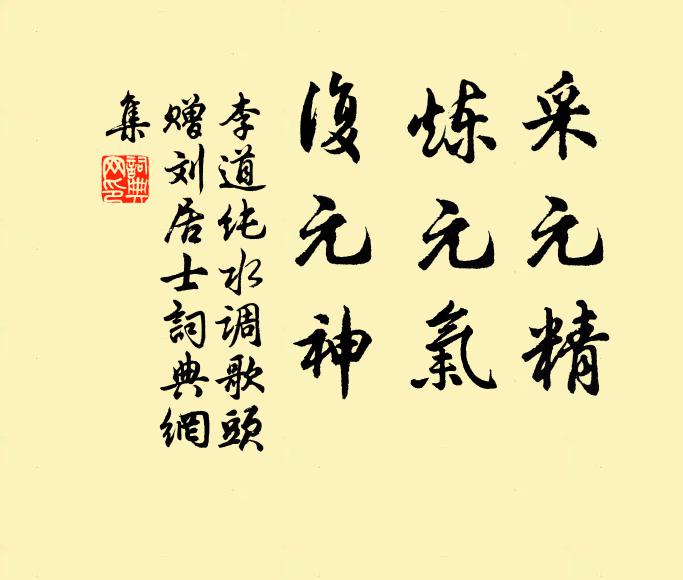 采元精
炼元氣
復元神
李道纯水调歌頭
赠刘居士詞典網
集
詞典
网印